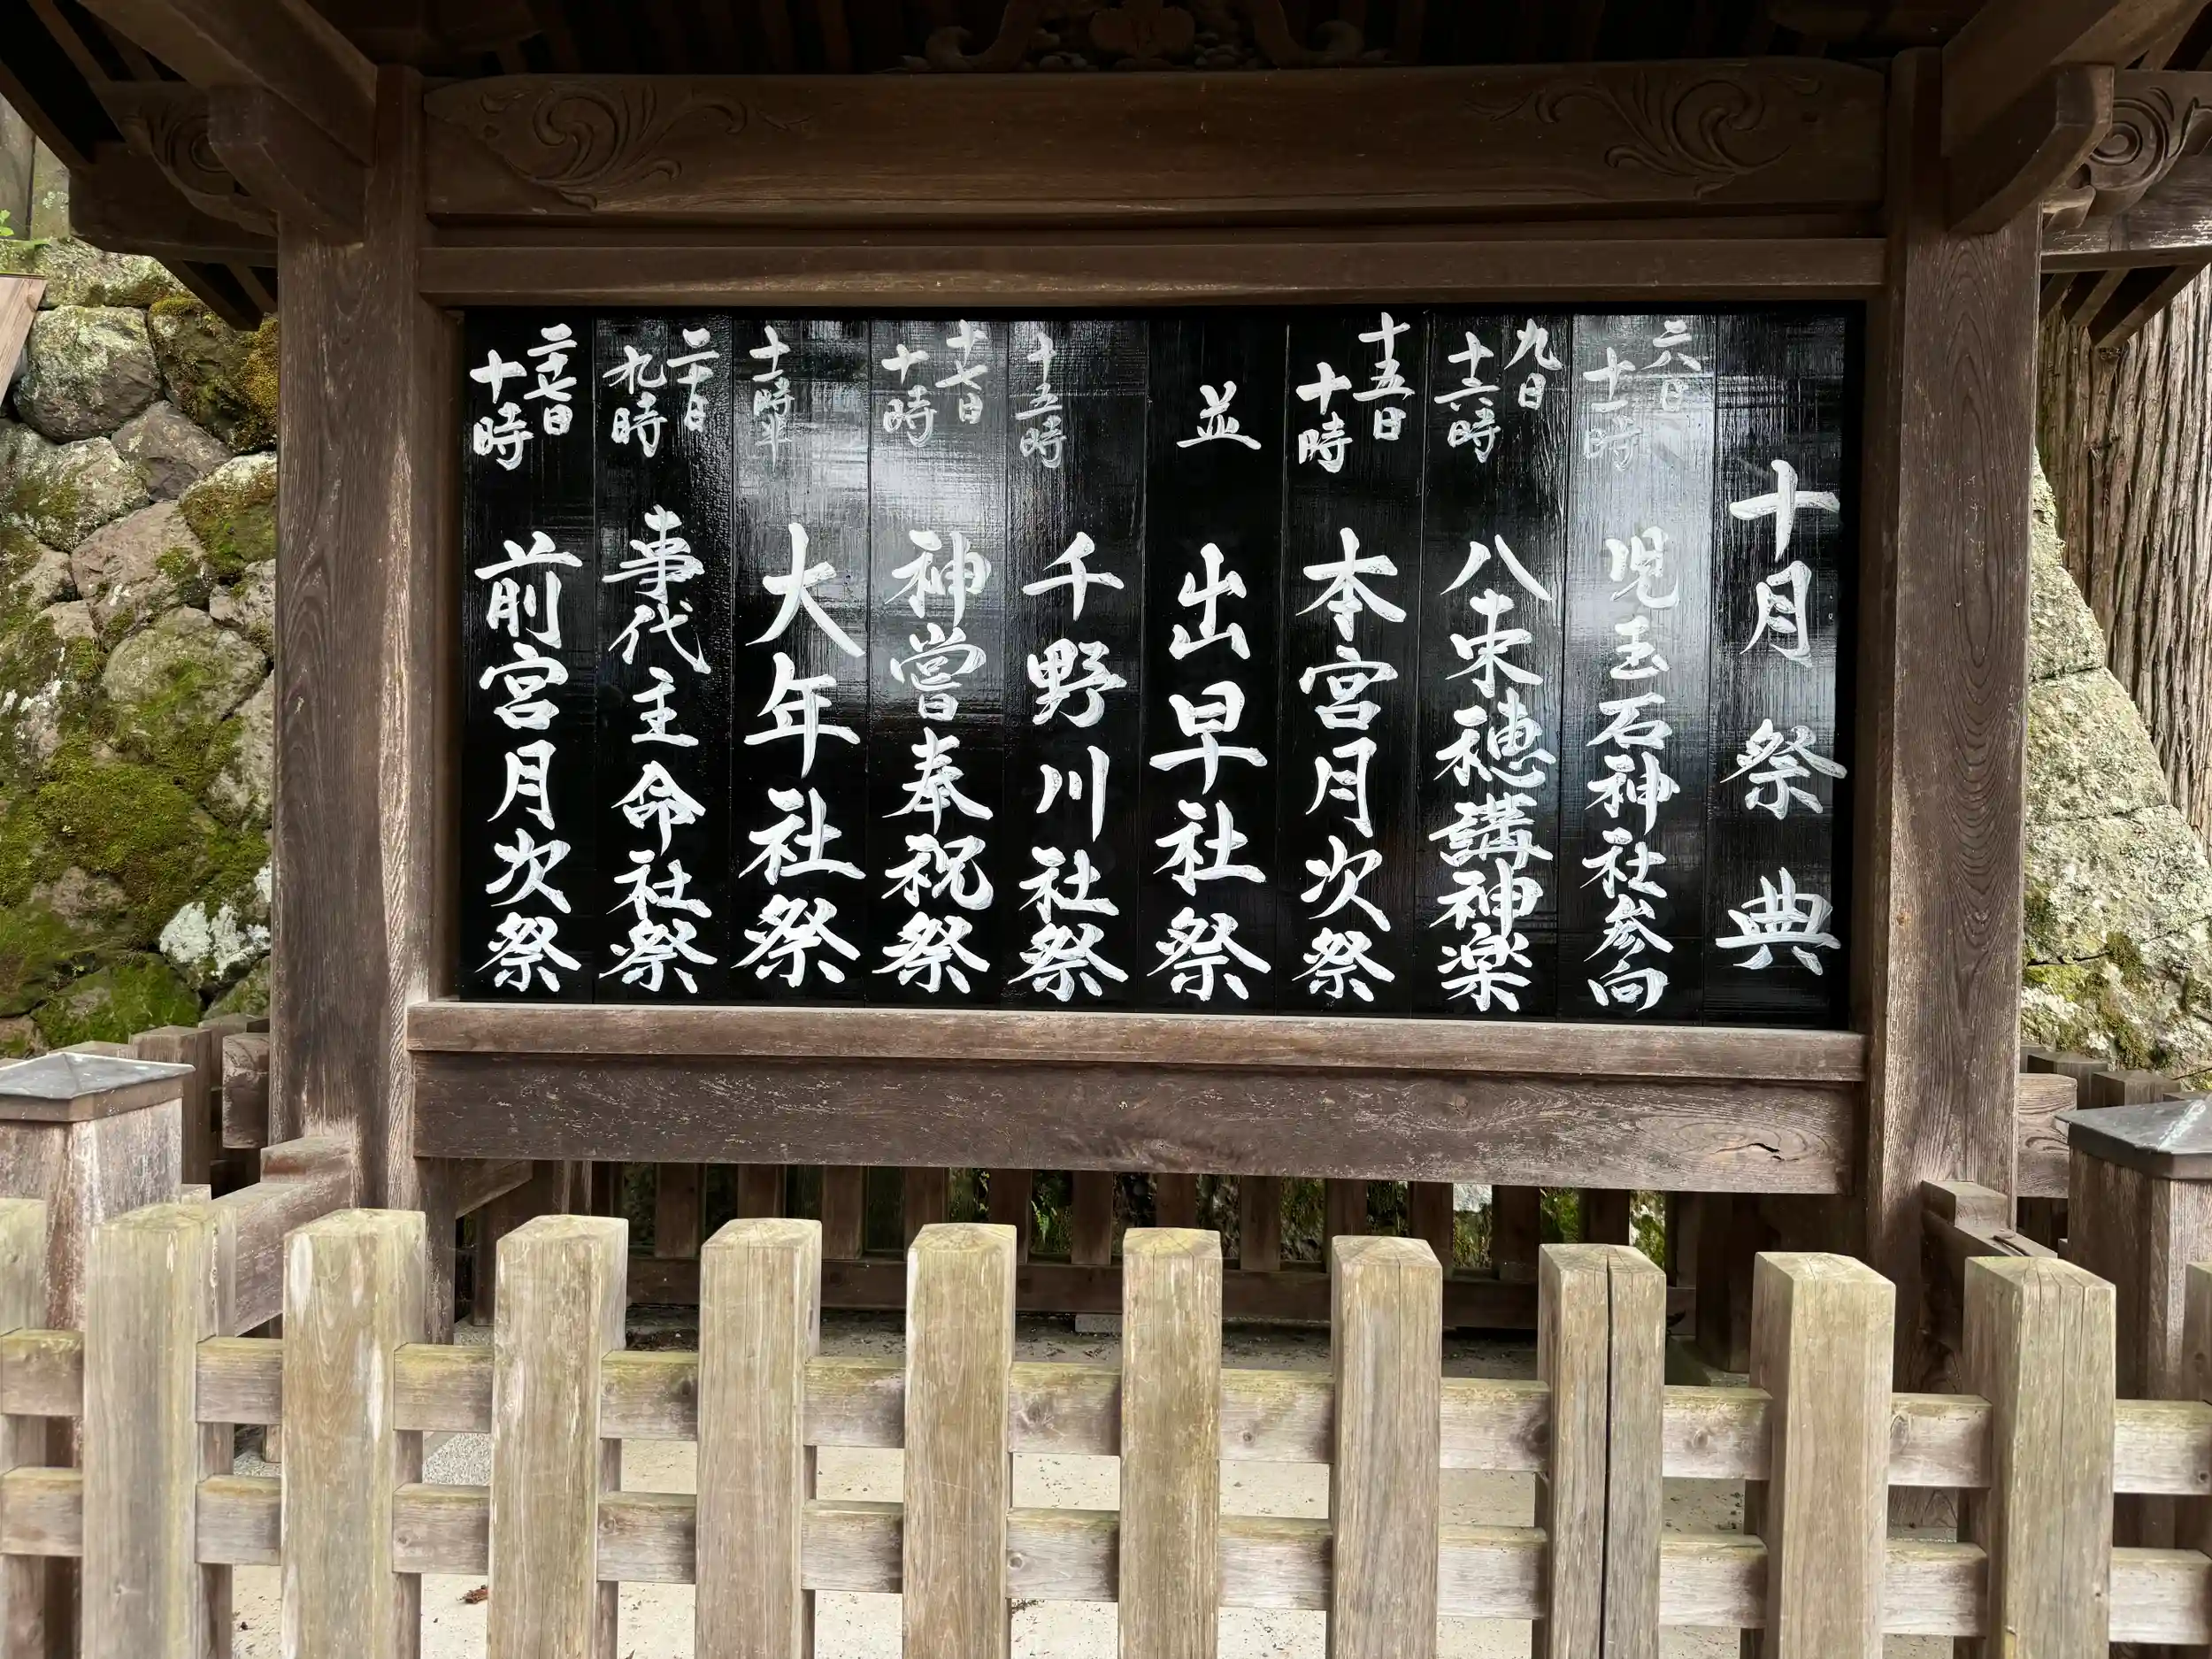 十月祭典
六日 十一時 児玉石神社参向
九日 十六時 八束穂講神楽
十五日 十時 本宮月次祭
並 出早社祭
十五時 千野川社祭
十七日 十時 神嘗奉祝祭
十一時半 大年社祭
二十日 九時 事代主命社祭
二十七日 十時 前宮月次祭